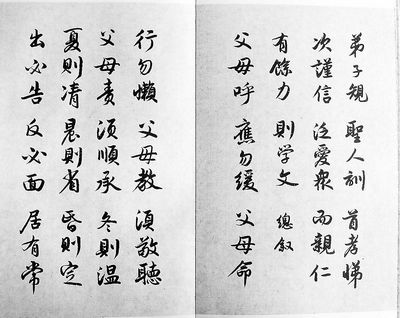 弟子規 聖人訓 首孝悌
次謹信 泛愛衆 而親仁
有餘力 則学文 總叙
父母呼 應勿緩 父母命
行勿懶 父母教 須敬聽
父母责 须順承 冬則温
夏則凊 晨則省 昏則定
出必告 反必面 居有常